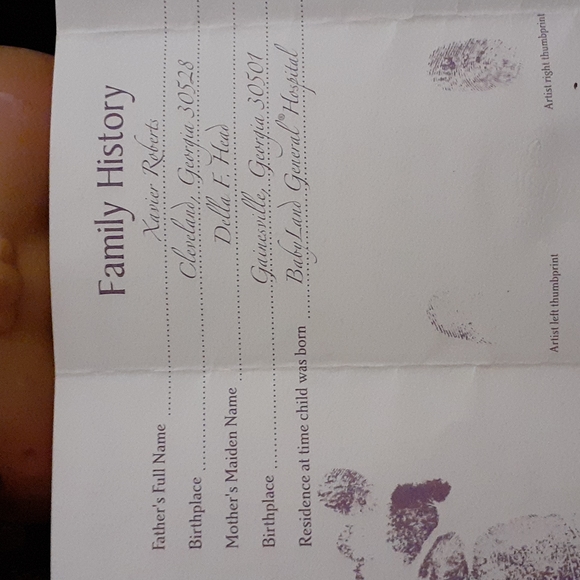 Family History
Father's Full Name Xavier Roberts
Birthplace Cleveland, Georgia 30528
Mother's Maiden Name Della F. Head
Birthplace Gainesville, Georgia 30501
Residence at time child was born BabyLand General® Hospital
Artist left thumbprint Artist right thumbprint